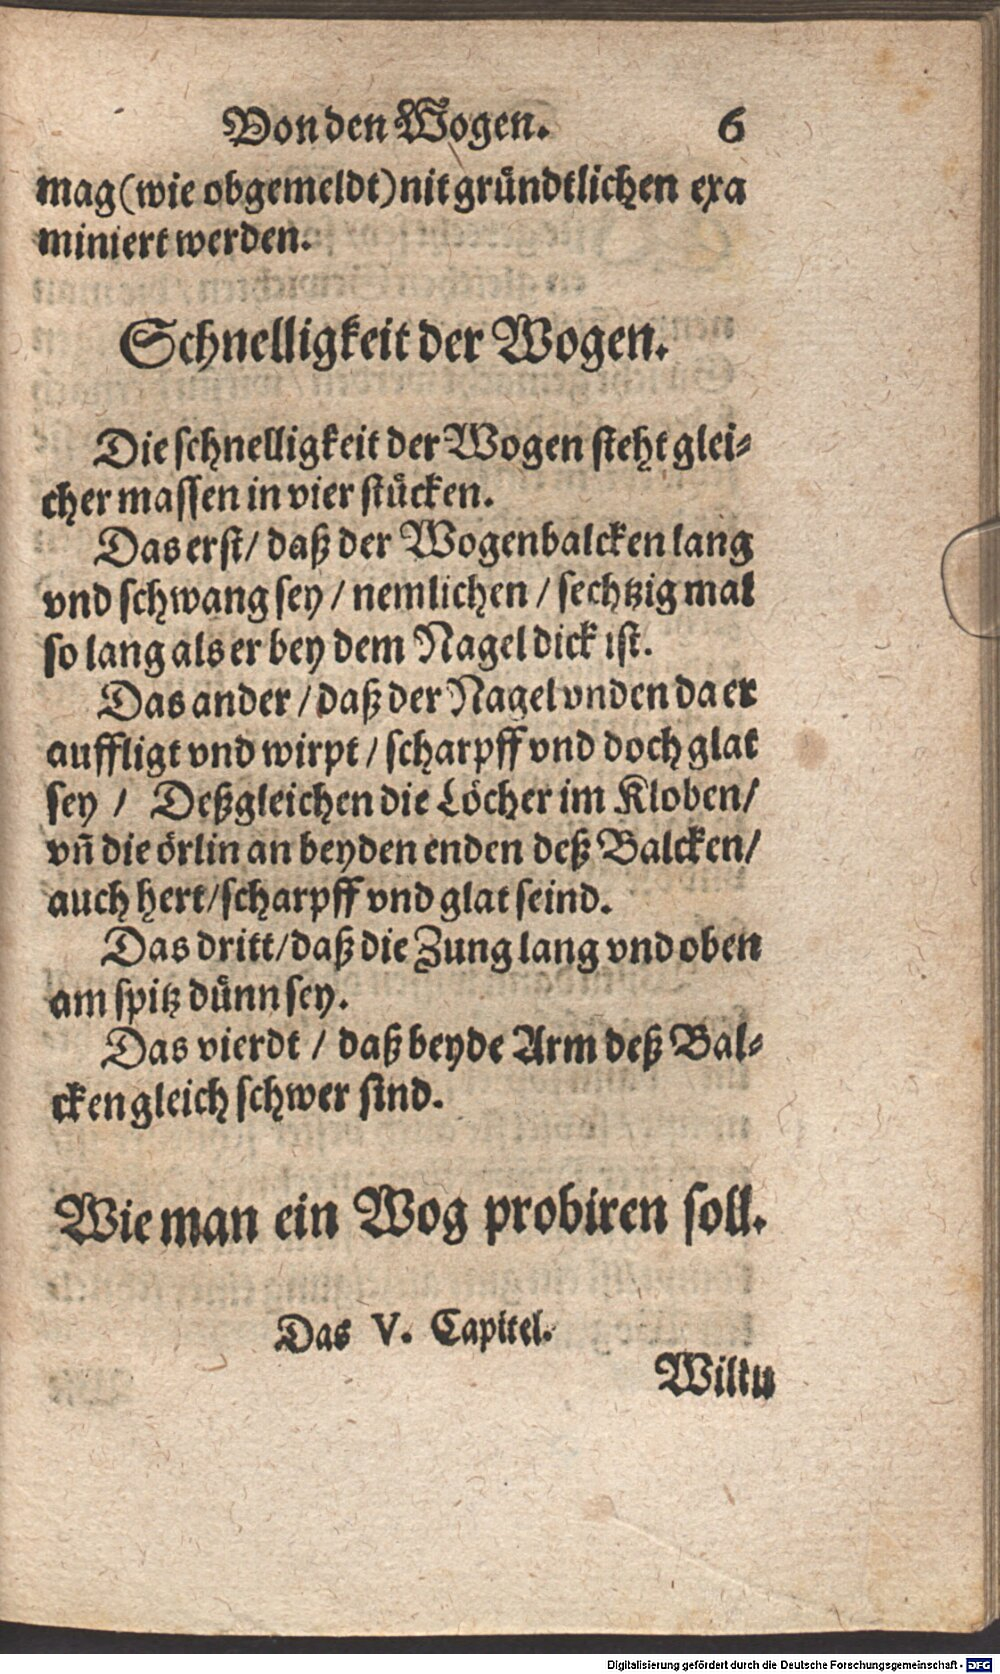 Von den Wogen. 6
mag (wie obgemeldt) nit gründtlichen exa
miniert werden.
Schnelligkeit der Wogen.
Die schnelligkeit der Wogen steht glei-
cher massen in vier stücken.
Das erst / daß der Wogenbalcken lang
vnd schwang sey / nemlichen / sechtzig mal
so lang als er bey dem Nagel dick ist.
Das ander / daß der Nagel vnden da er
auffligt vnd wirpt / scharpff vnd doch glat
sey / Deßgleichen die Löcher im Kloben /
vñ die örlin an beyden enden deß Balcken /
auch hert / scharpff vnd glat seind.
Das dritt / daß die Zung lang vnd oben
am spitz dünn sey.
Das vierdt / daß beyde Arm deß Bal-
cken gleich schwer sind.
Wie man ein Wog probiren soll.
Das V. Capitel.
Wiltu
Digitalisierung gefördert durch die Deutsche Forschungsgemeinschaft - DFG